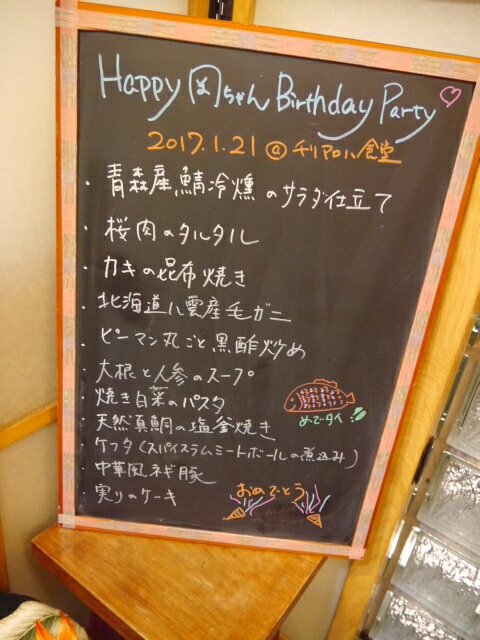 Happy 岡ちゃん Birthday Party
2017.1.21 @ チリアロハ食堂
・青森産鯖冷燻のサラダ仕立て
・桜肉のタルタル
・カキの昆布焼き
・北海道八雲産毛ガニ
・ピーマン丸ごと黒酢炒め
・大根と人参のスープ
・焼き白菜のパスタ
・天然真鯛の塩釜焼き
・ケフタ(スパイスラムミートボールの煮込み)
・中華風ネギ豚
・実りのケーキ
めでタイ
おめでとう